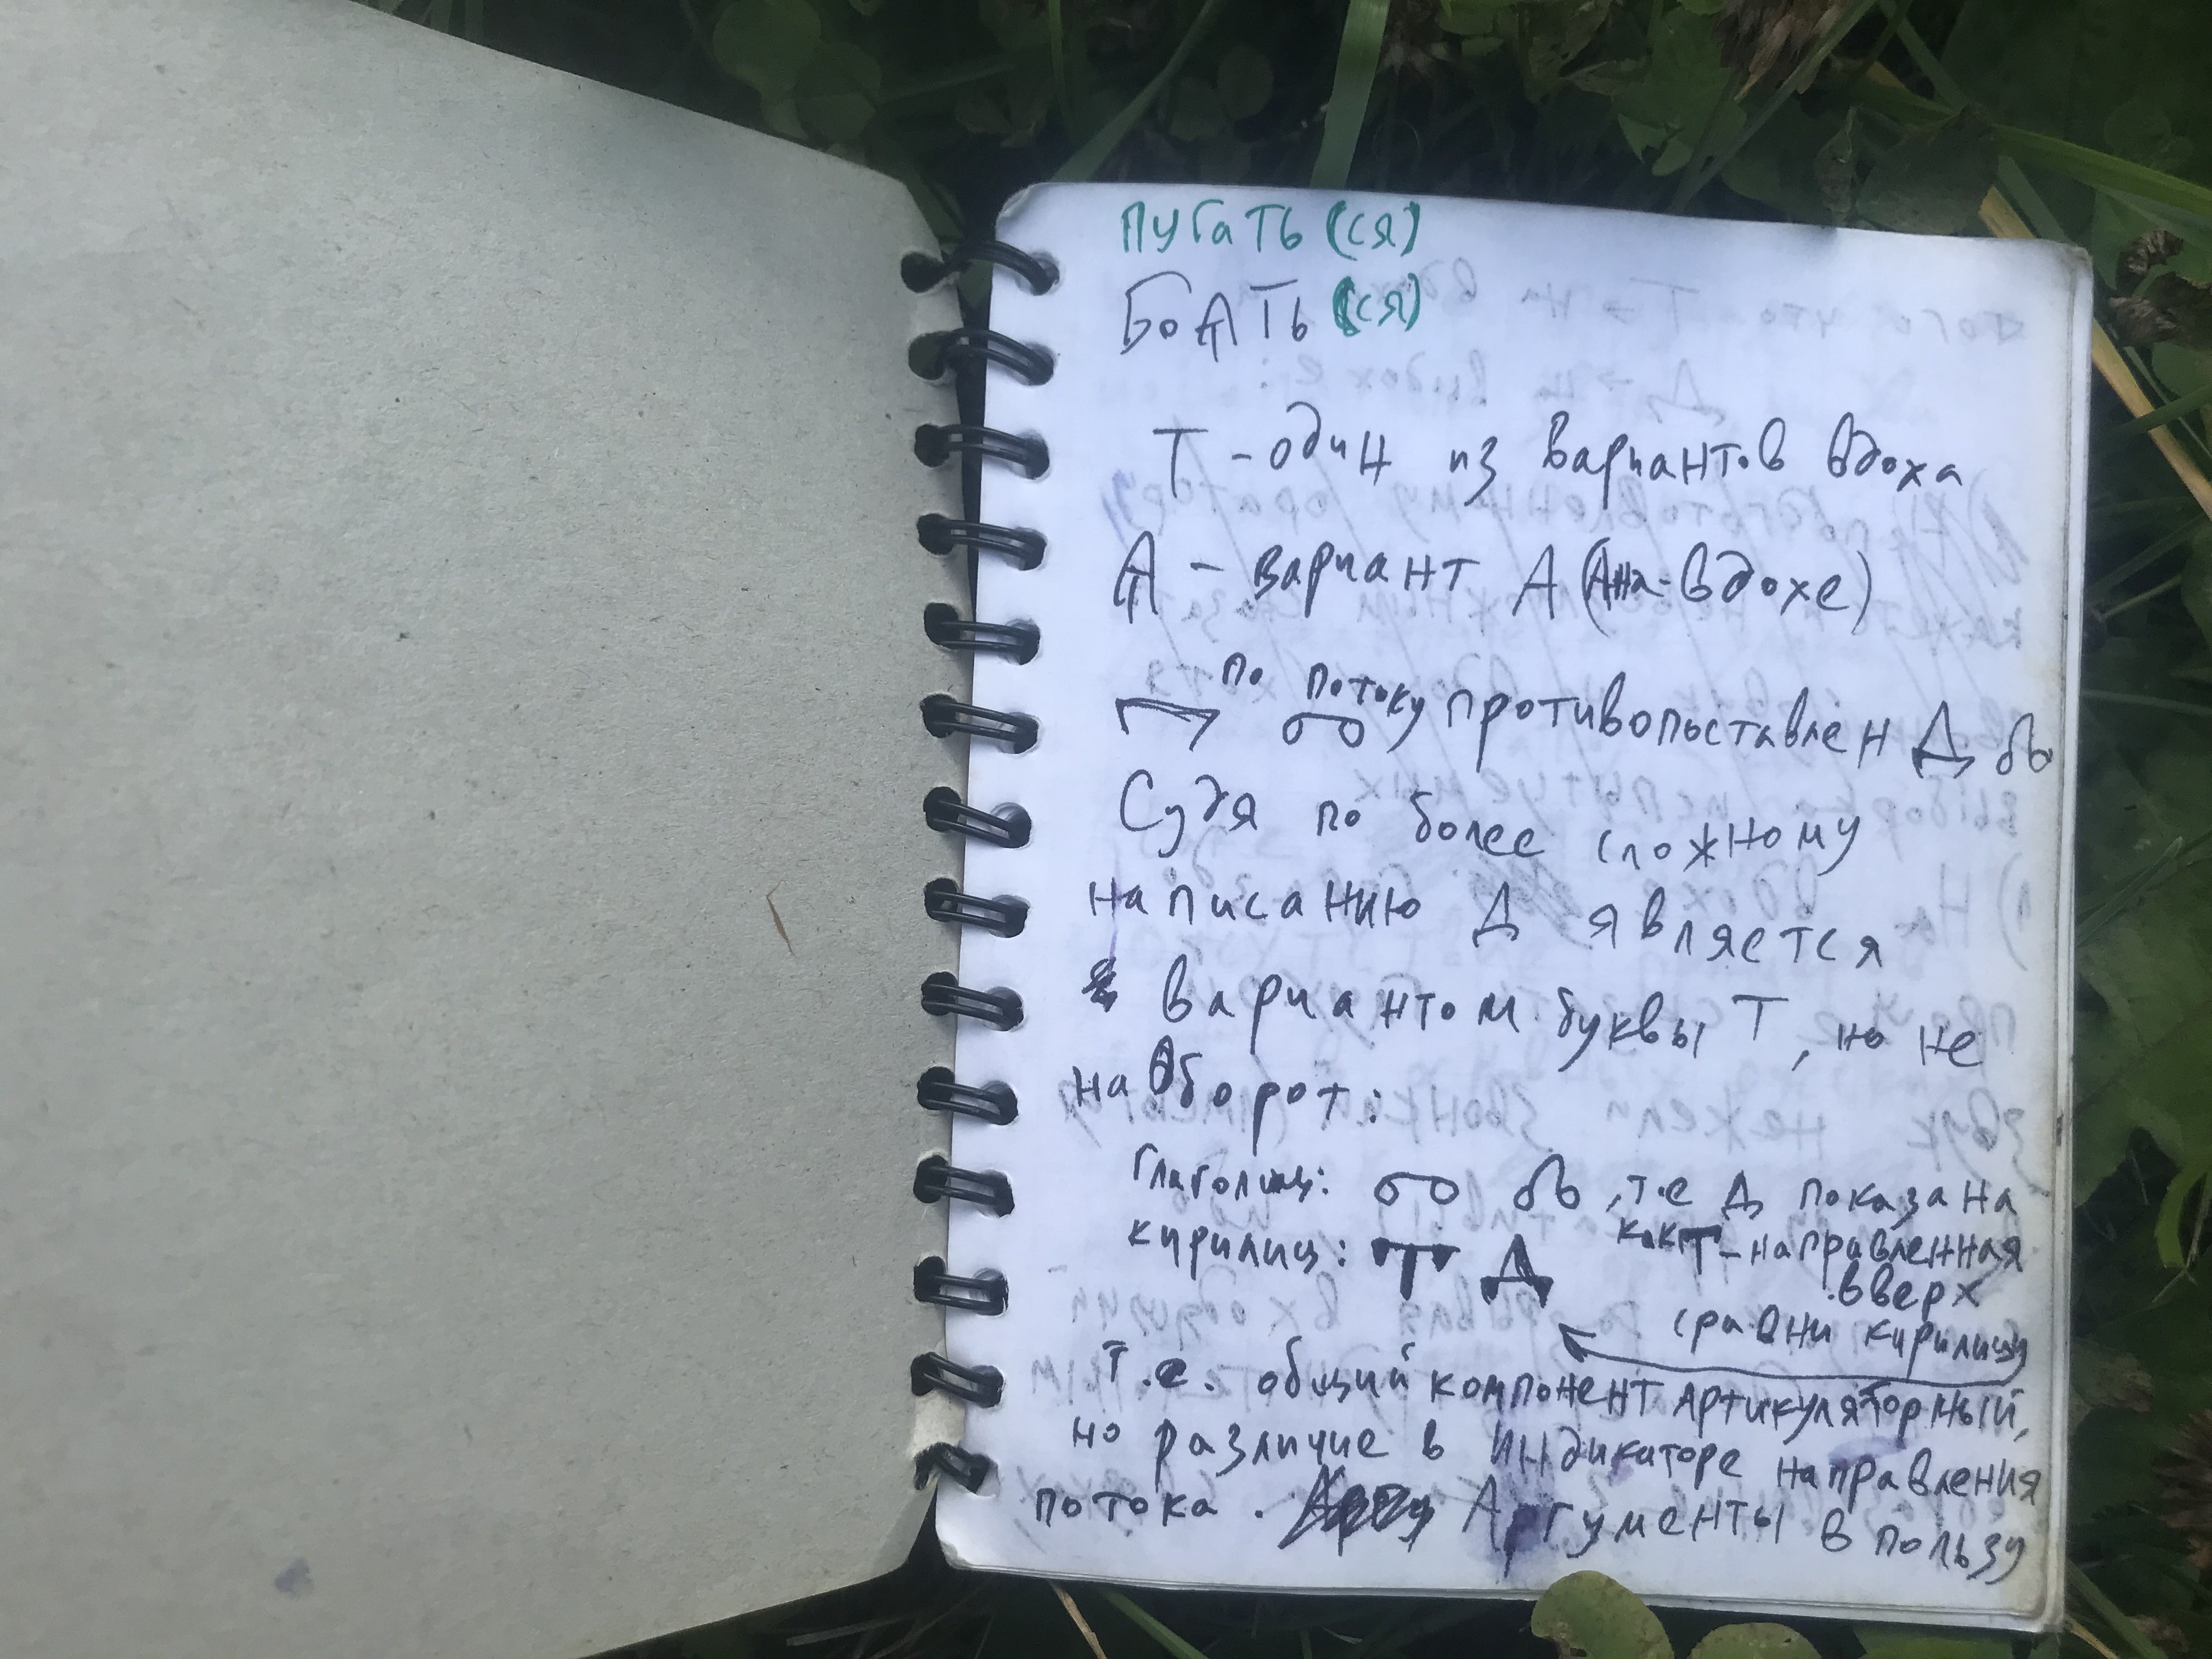 ПУГАТЬ (СЯ)
БОАТЬ (СЯ)
Т - один из вариантов вдоха
А - вариант А (на вдохе)
по потоку противопоставлен
Судя по более сложному
написанию Д является
вариантом буквы Т, но не
наоборот:
Глаголица: , т.е Д показана
как Т - направленная
вверх
кирилица: Т Д
сравни кирилицу
т.е. общий компонент артикуляторный,
но различие в индикаторе направления
потока. Аргументы в пользу